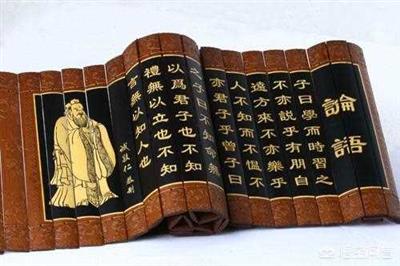 論語
子曰學而時習之
不亦說乎有朋自
遠方來不亦樂乎
人不知而不慍不
亦君子乎曾子曰
子曰不知命無
以爲君子也不知
禮無以立也不知
言無以知人也
誠敬仁 恭刻
悟空问答